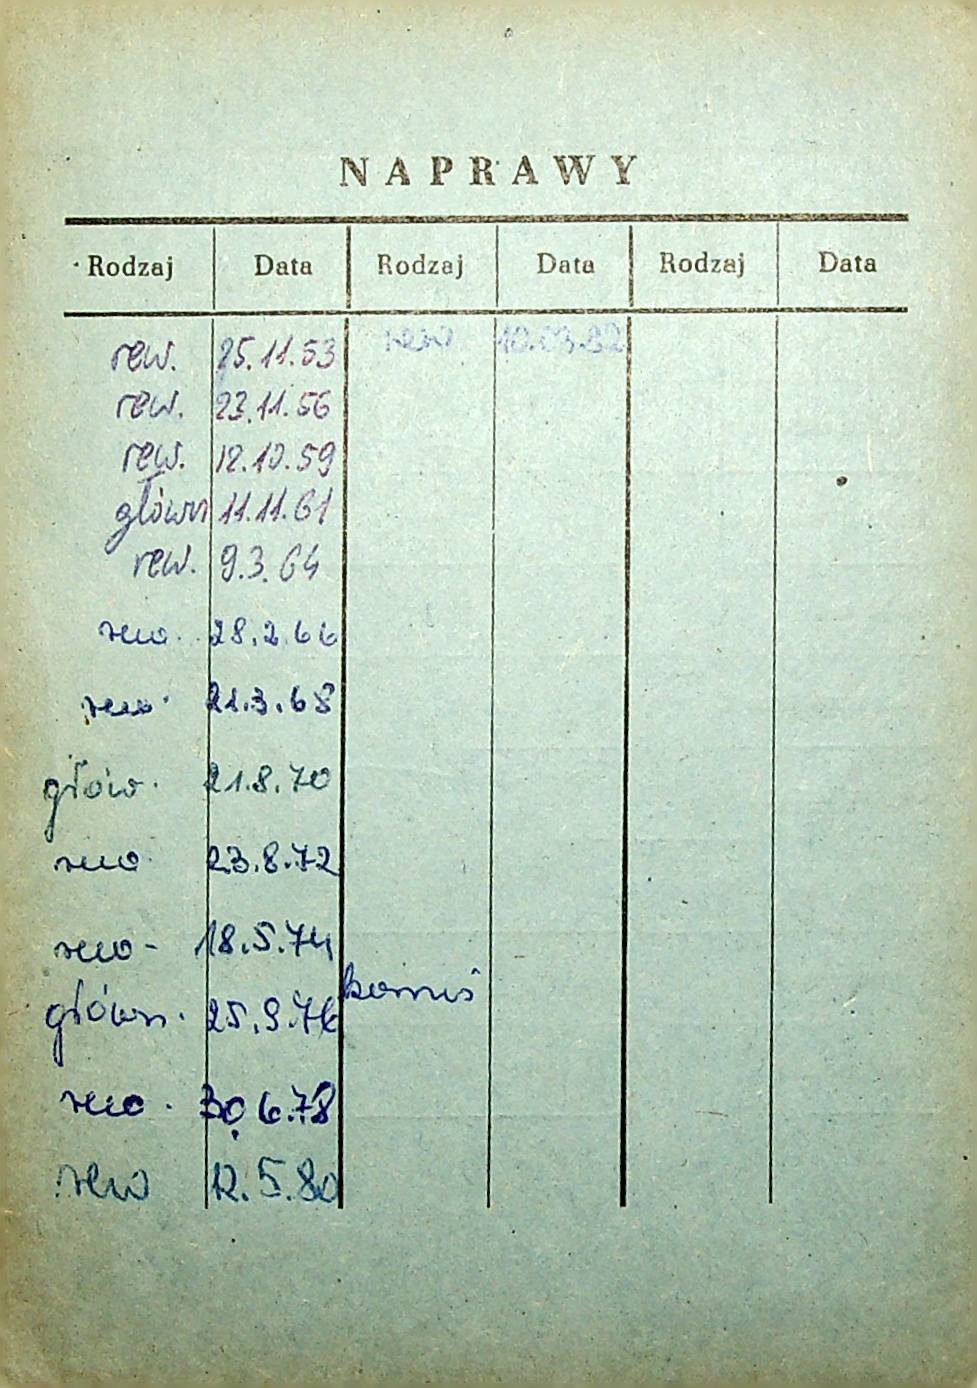 NAPRAWY
Rodzaj Data Rodzaj Data Rodzaj Data
rew. 25.11.53 rew 10.03.82
rew. 23.11.56
rew. 12.10.59
główn 11.11.61
rew. 9.3.64
rew. 28.2.66
rew. 21.3.68
głów. 21.8.70
rew. 23.8.72
rew- 18.5.74
główn. 25.9.76 komis
rew. 30.6.78
rew 12.5.80